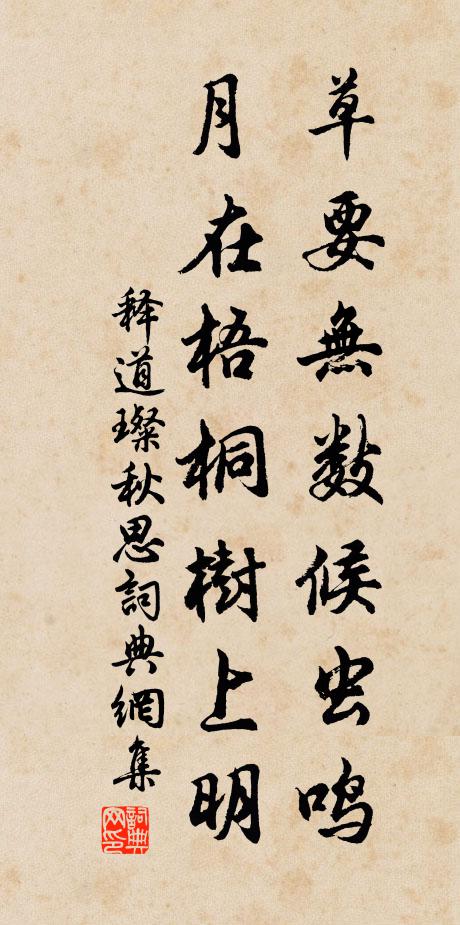 草要無数候虫鳴
月在梧桐樹上明
释道璨秋思詞典網集
詞典网印